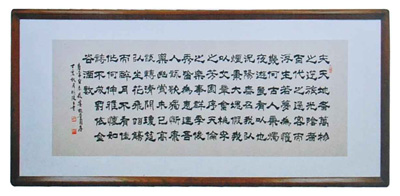 夫天地者萬物
之逆旅光陰者
百代之過客而
浮生若夢為歡
幾何古人秉燭
夜遊良有以也
況陽春召我以
煙景大塊假我
以文章會桃
之芳園序天倫
之樂事群季俊
秀皆為惠連吾
人詠歌獨慚康
樂幽賞未已高
談轉清開瓊筵
以坐花飛羽觴
而醉月不有佳
作何伸雅懷如
詩不成罰依金
谷酒數